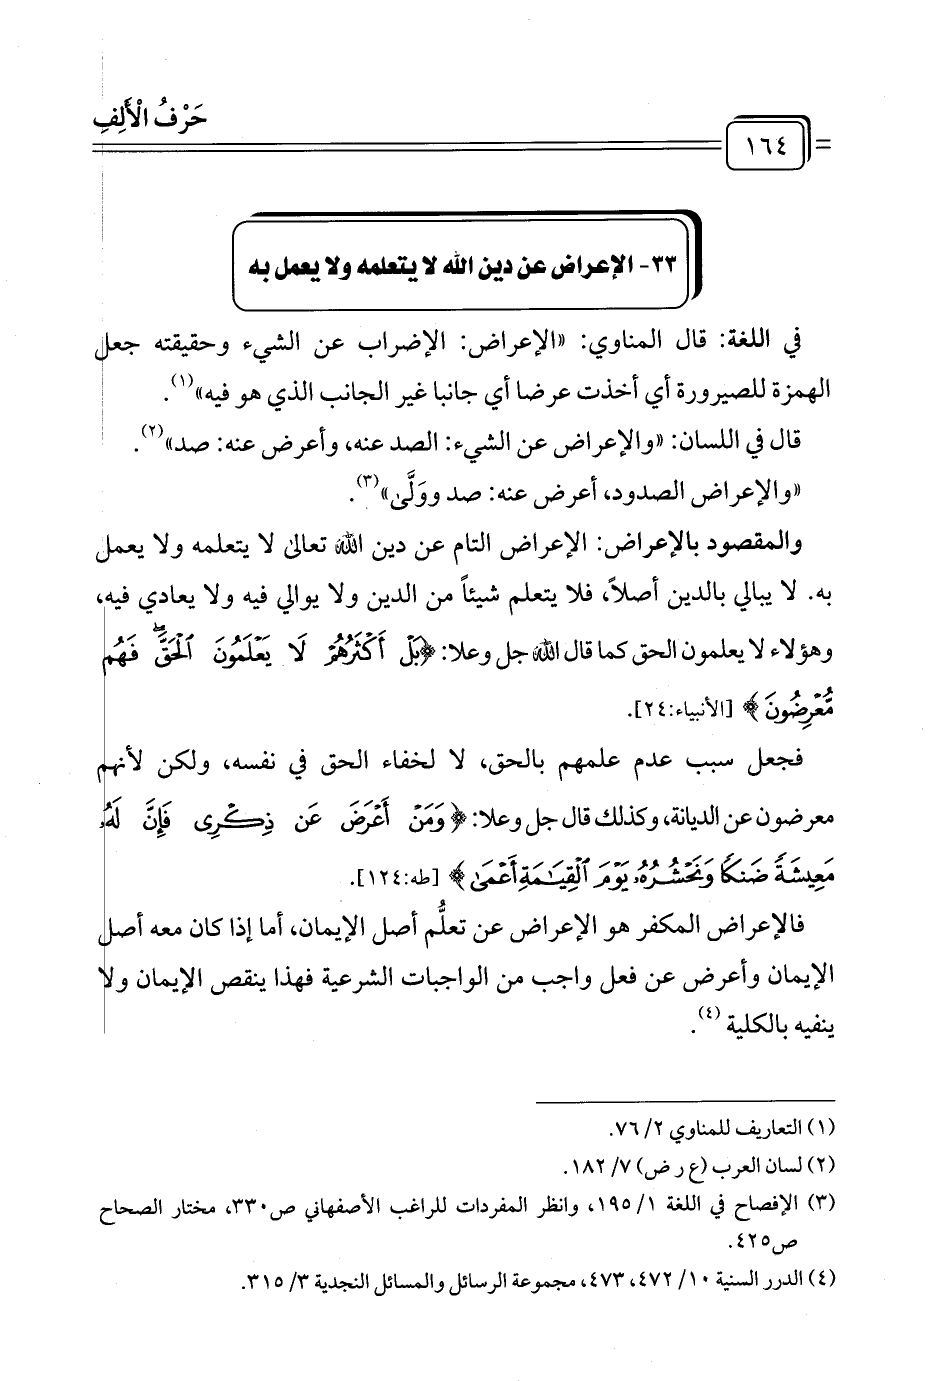 حَرْفُ الْأَلِفِ
١٦٤
٣٣- الإعراض عن دين الله لا يتعلمه ولا يعمل به
في اللغة: قال المناوي: «الإعراض: الإضراب عن الشيء وحقيقته جعل
الهمزة للصيرورة أي أخذت عرضا أي جانبا غير الجانب الذي هو فيه»(١).
قال في اللسان: «والإعراض عن الشيء: الصد عنه، وأعرض عنه: صد»(٢).
«والإعراض الصدود، أعرض عنه: صد ووَلَّىٰ»(٣).
والمقصود بالإعراض: الإعراض التام عن دين الله تعالىٰ لا يتعلمه ولا يعمل
به. لا يبالي بالدين أصلاً، فلا يتعلم شيئاً من الدين ولا يوالي فيه ولا يعادي فيه،
وهؤلاء لا يعلمون الحق كما قال الله جل وعلا: ﴿بَلْ أَكْثَرُهُمْ لَا يَعْلَمُونَ ٱلْحَقَّۖ فَهُم
مُّعْرِضُونَ﴾ [الأنبياء:٢٤].
فجعل سبب عدم علمهم بالحق، لا لخفاء الحق في نفسه، ولكن لأنهم
معرضون عن الديانة، وكذلك قال جل وعلا: ﴿وَمَنْ أَعْرَضَ عَن ذِكْرِى فَإِنَّ لَهُۥ
مَعِيشَةً ضَنكًا وَنَحْشُرُهُۥ يَوْمَ ٱلْقِيَـٰمَةِ أَعْمَىٰ﴾ [طه:١٢٤].
فالإعراض المكفر هو الإعراض عن تعلُّم أصل الإيمان، أما إذا كان معه أصل
الإيمان وأعرض عن فعل واجب من الواجبات الشرعية فهذا ينقص الإيمان ولا
ينفيه بالكلية (٤).
(١) التعاريف للمناوي ٢/ ٧٦.
(٢) لسان العرب (ع ر ض) ٧/ ١٨٢.
(٣) الإفصاح في اللغة ١/ ١٩٥، وانظر المفردات للراغب الأصفهاني ص٣٣٠، مختار الصحاح
ص٤٢٥.
(٤) الدرر السنية ١٠/ ٤٧٢، ٤٧٣، مجموعة الرسائل والمسائل النجدية ٣/ ٣١٥.